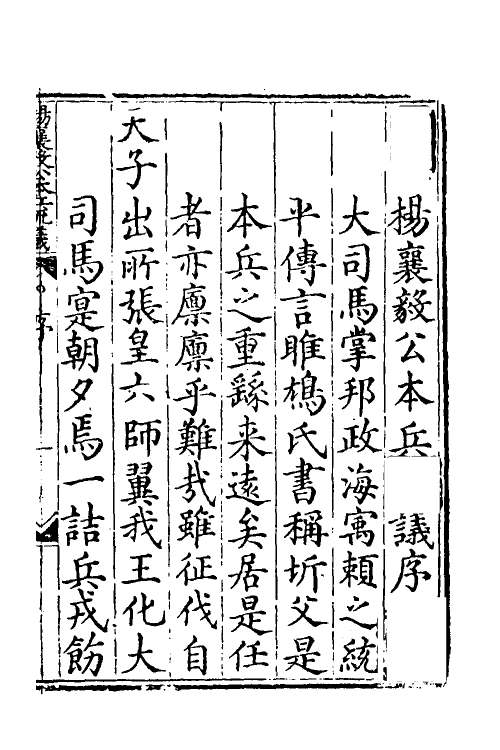 楊襄毅公本兵議序
大司馬掌邦政海寓賴之統
平傳言雎鳩氏書稱圻父是
本兵之重繇来遠矣居是任
者亦廩廩乎難㢤雖征伐自
天子出所張皇六師翼我王化大
司馬寔朝夕焉一詰兵戎飭